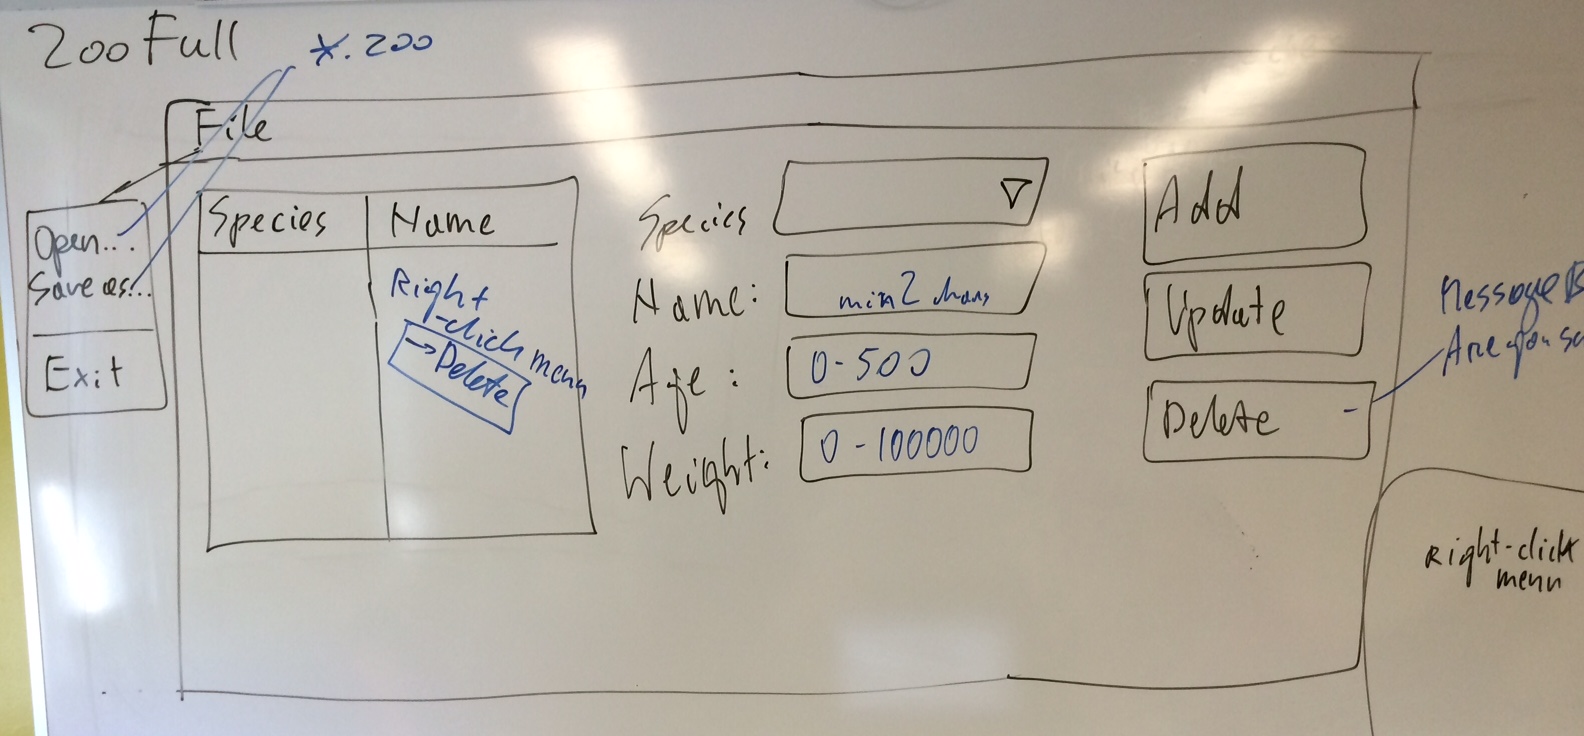 ZooFull
*.zoo
File
Open...
Save as...
Exit
Species Name
Right
-click menu
→Delete
Species
Name: min 2 chars
Age: 0-500
Weight: 0-100000
Add
Update
Delete -
Message B
Are you su
Right-click
menu